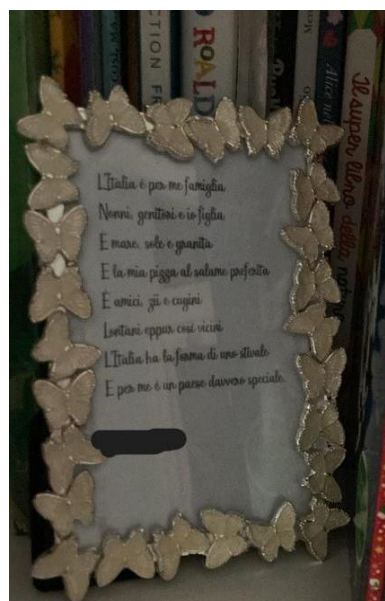 CTION FR
ROALD
Alice nel
Il super libro della
L'Italia é per me famiglia
Nonni, genitori e io figlia
É mare, sole e granita
E la mia pizza al salame preferita
É amici, zii e cugini
Lontani eppur cosí vicini
L'Italia ha la forma di uno stivale
E per me é un paese davvero speciale.